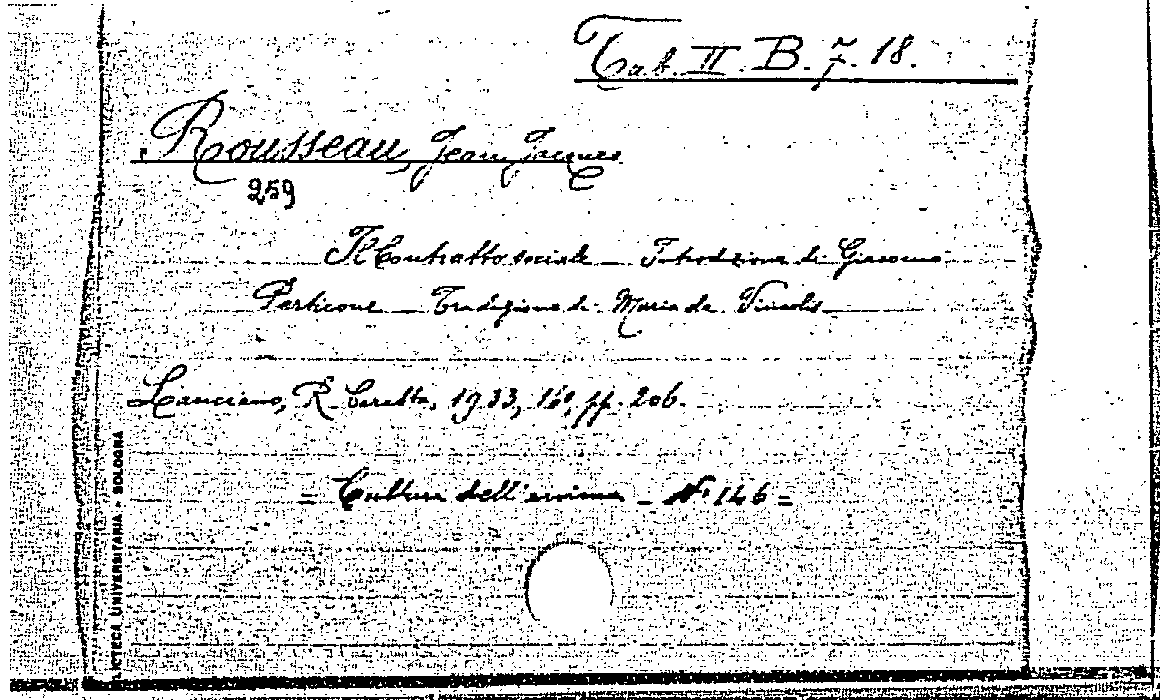 Tab. II. B. 7. 18.
Rousseau, Jean Jacques
259
Il Contratto sociale — Introdzione di Giacomo
Perticone — Tradizione di Maria de Vincolis
Lanciano, R. Caratta, 1933, 16°, pp. 206.
= Cultura dell'anima — N° 146 =
UNIVERSITARIA - BOLOGNA